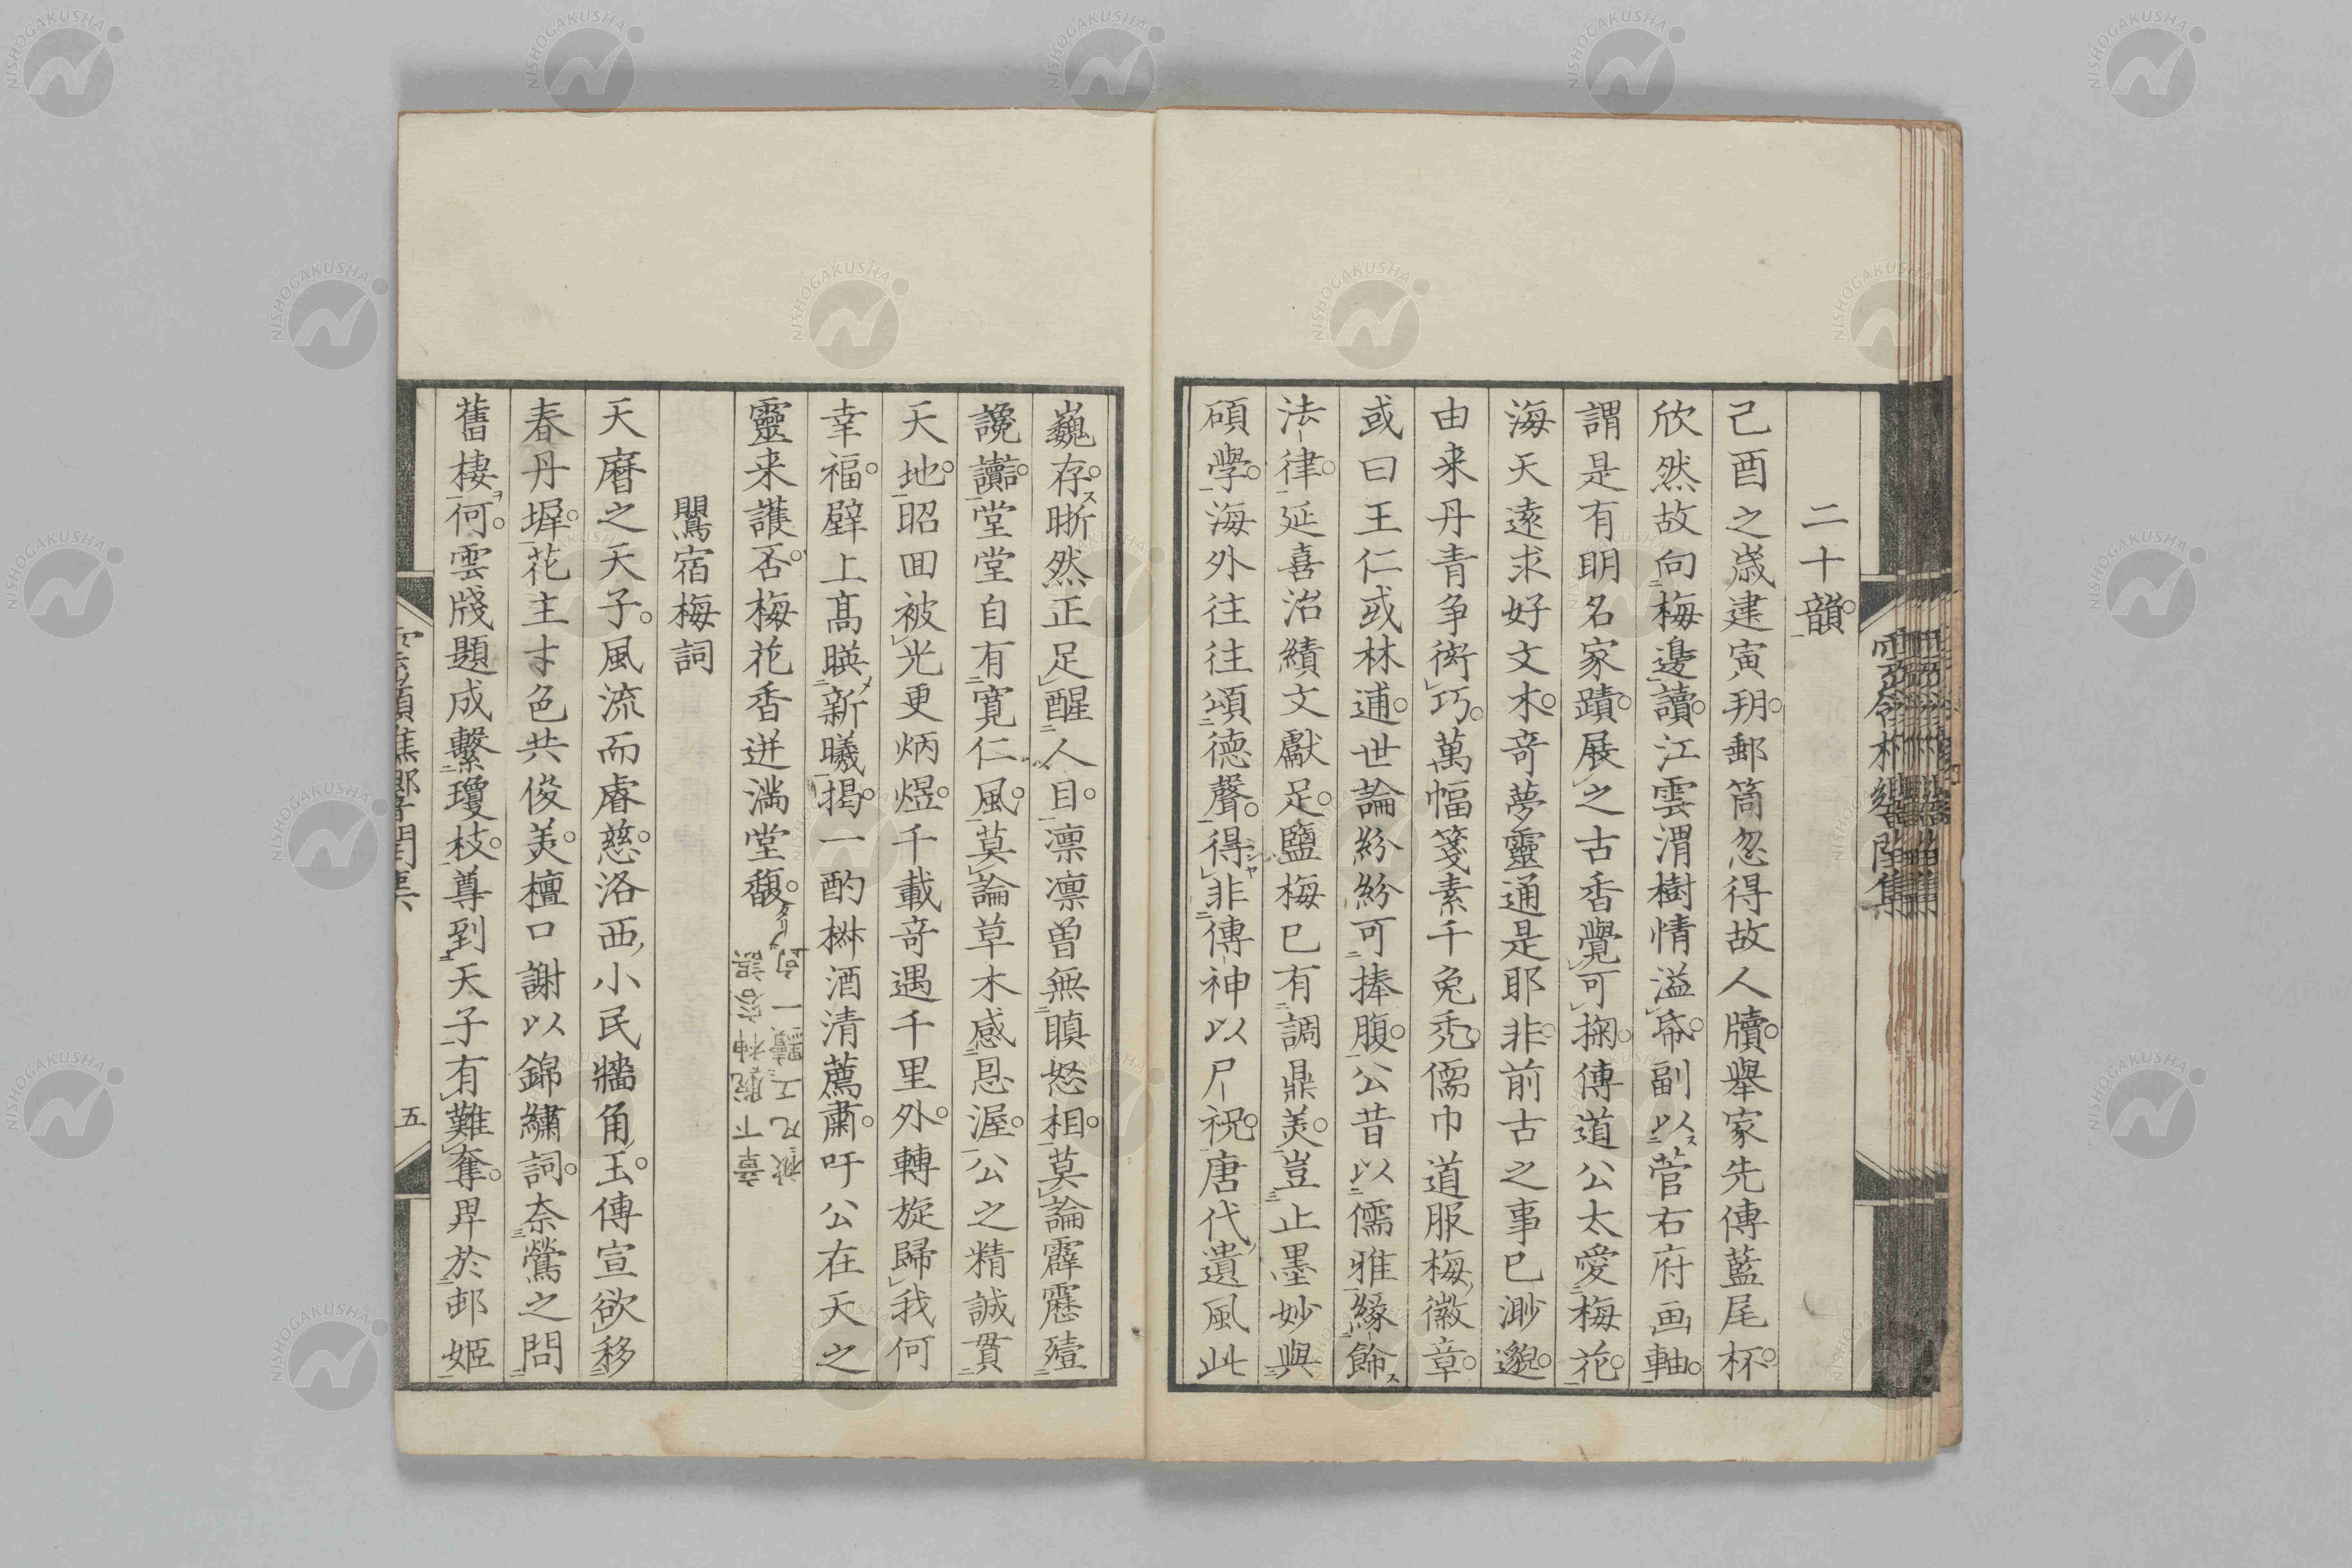 二十韻
己酉之歳建寅朔郵筒忽得故人牘舉家先傳藍尾杯
欣然故向梅邊讀江雲渭樹情溢帋副以菅右府画軸
謂是有明名家蹟展之古香覺可掬傳道公太愛梅花
海天遠求好文木竒夢靈通是耶非前古之事已渺邈
由来丹青争衒巧萬幅箋素千兔禿儒巾道服梅徽章
或曰王仁或林逋世論紛紛可捧腹公昔以儒雅緣飾
法律延喜治績文獻足鹽梅已有調鼎美豈止墨妙與
碩學海外往往頌德聲得非傳神以尸祝唐代遺風此
巍存晣然正足醒人目凛凛曽無瞋怒相莫論霹靂殪
讒讟堂堂自有寛仁風莫論草木感恩渥公之精誠貫
天地昭囬被光更炳煜千載竒遇千里外轉旋歸我何
幸福壁上髙暎新曦揭一酌椒酒清薦肅吁公在天之
靈来護否梅花香迸満堂馥
鸎宿梅詞
天暦之天子風流而睿慈洛西小民牆角玉傳宣欲移
春丹墀花主才色共俊美檀口謝以錦繡詞奈鶯之問
舊棲何雲牋題成繫瓊枝尊到天子有難奪畀於邨姬
五
NISHOGAKUSHA